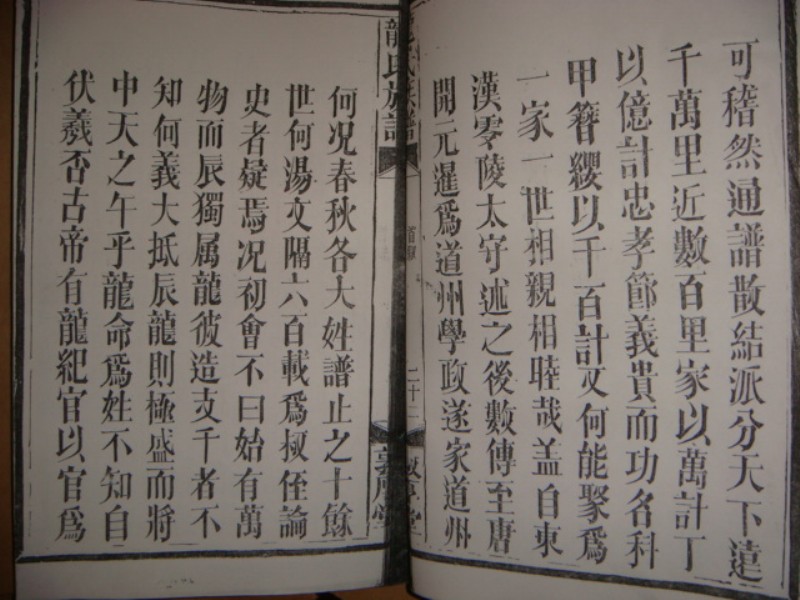 可稽然通譜散結派分天下遠
千萬里近數百里家以萬計丁
以億計忠孝節義貴而功名科
甲簪纓以千百計又何能聚爲
一家一世相親相睦哉盖自東
漢零陵太守述之後數傳至唐
開元暹爲道州學政遂家道州
二十二
龍氏族譜
敦厚堂
何况春秋各大姓譜止之十餘
世何湯文隔六百載爲叔侄論
史者疑焉况初會不曰始有萬
物而辰獨属龍彼造支千者不
知何義大抵辰龍則極盛而將
中天之午乎龍命爲姓不知自
伏羲否古帝有龍紀官以官爲